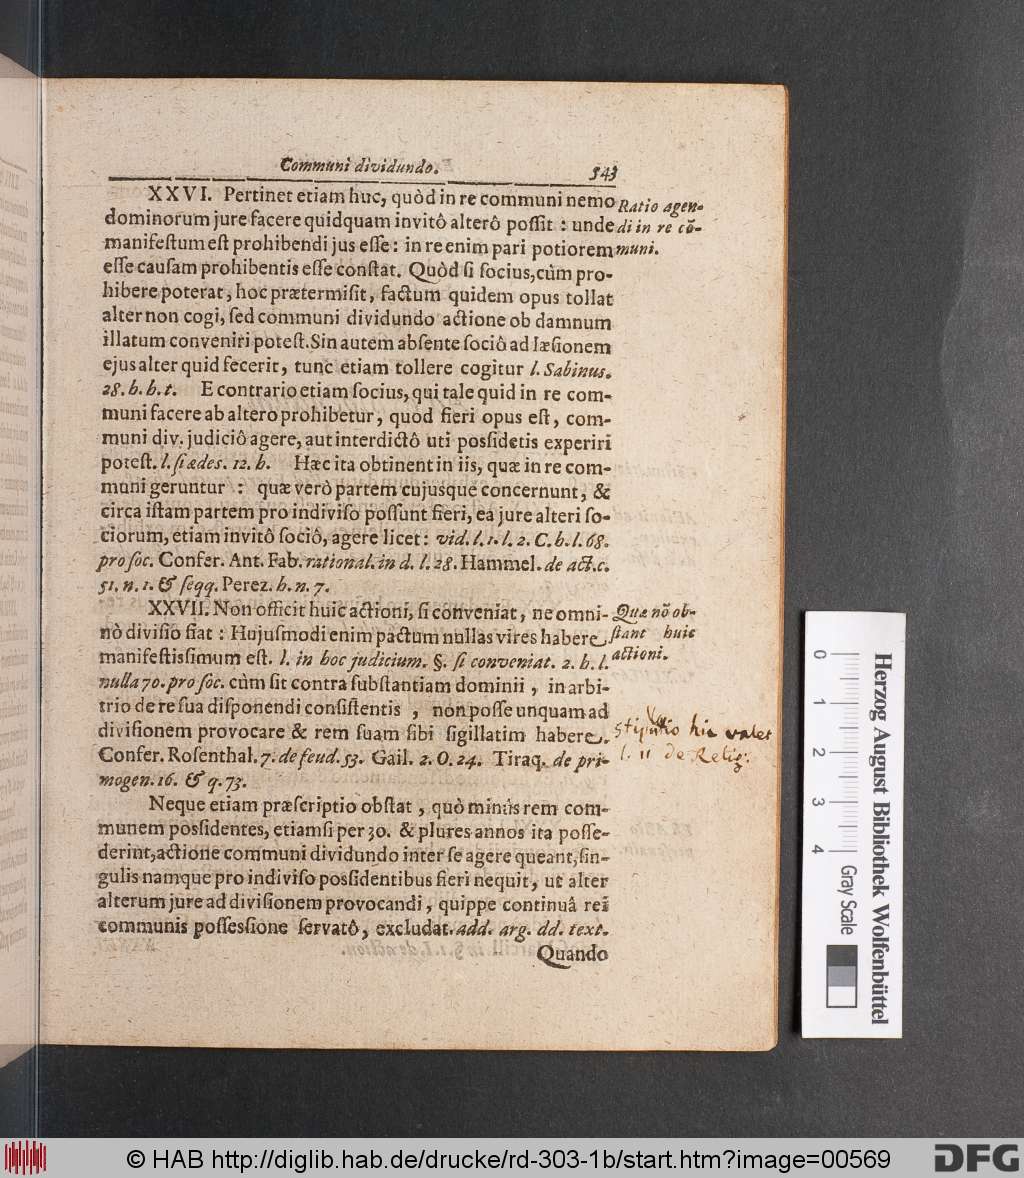 Communi dividundo. 543
XXVI. Pertinet etiam huc, quòd in re communi nemo
dominorum jure facere quidquam invitô alterô poſſit : unde
manifeſtum eſt prohibendi jus eſſe : in re enim pari potiorem
eſſe cauſam prohibentis eſſe conſtat. Quòd ſi ſocius, cùm pro-
hibere poterat, hoc prætermiſit, factum quidem opus tollat
alter non cogi, ſed communi dividundo actione ob damnum
illatum conveniri poteſt. Sin autem abſente ſociô ad læſionem
ejus alter quid fecerit, tunc etiam tollere cogitur l. Sabinus.
28. h. h. t. E contrario etiam ſocius, qui tale quid in re com-
muni facere ab altero prohibetur, quod fieri opus eſt, com-
muni div. judiciô agere, aut interdictô uti poſſidetis experiri
poteſt. l. ſi ædes. 12. h. Hæc ita obtinent in iis, quæ in re com-
muni geruntur : quæ verò partem cujusque concernunt, &
circa iſtam partem pro indiviſo poſſunt fieri, ea jure alteri ſo-
ciorum, etiam invitô ſociô, agere licet : vid. l. 1. l. 2. C. h. l. 68.
pro ſoc. Confer. Ant. Fab. rational. in d. l. 28. Hammel. de act. c.
51. n. 1. & ſeqq. Perez. h. n. 7.
Ratio agen-
di in re cõ-
muni.
XXVII. Non officit huic actioni, ſi conveniat, ne omni-
nò diviſio fiat : Hujuſmodi enim pactum nullas vires habere
manifeſtiſſimum eſt. l. in hoc judicium. §. ſi conveniat. 2. h. l.
nulla 70. pro ſoc. cùm ſit contra ſubſtantiam dominii, in arbi-
trio de re ſua diſponendi conſiſtentis, non poſſe unquam ad
diviſionem provocare & rem ſuam ſibi ſigillatim habere.
Confer. Roſenthal. 7. de feud. 53. Gail. 2. O. 24. Tiraq. de pri-
mogen. 16. & q. 73.
Quæ nõ ob-
ſtant huic
actioni.
hic valet
l. 11 de Relig:
Neque etiam præſcriptio obſtat, quò minùs rem com-
munem poſſidentes, etiamſi per 30. & plures annos ita poſſe-
derint, actione communi dividundo inter ſe agere queant, ſin-
gulis namque pro indiviſo poſſidentibus fieri nequit, ut alter
alterum jure ad diviſionem provocandi, quippe continuâ rei
communis poſſeſſione ſervatô, excludat. add. arg. dd. text.
Quando
0 1 2 3 4
Herzog August Bibliothek Wolfenbüttel
Gray Scale
© HAB http://diglib.hab.de/drucke/rd-303-1b/start.htm?image=00569
DFG